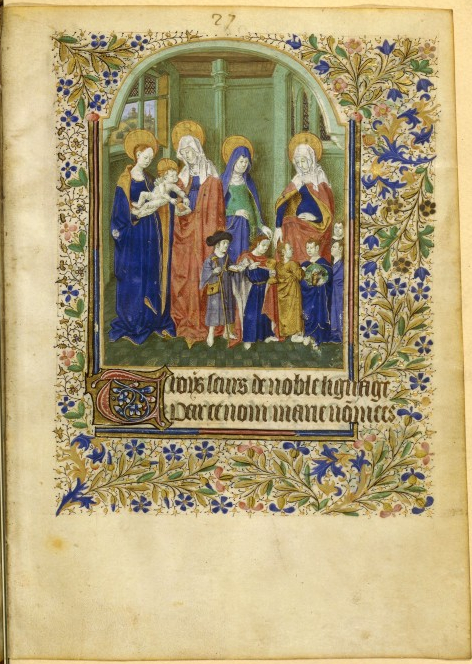 27
Trois seurs de noble lignage
Par ce nom marie nomees